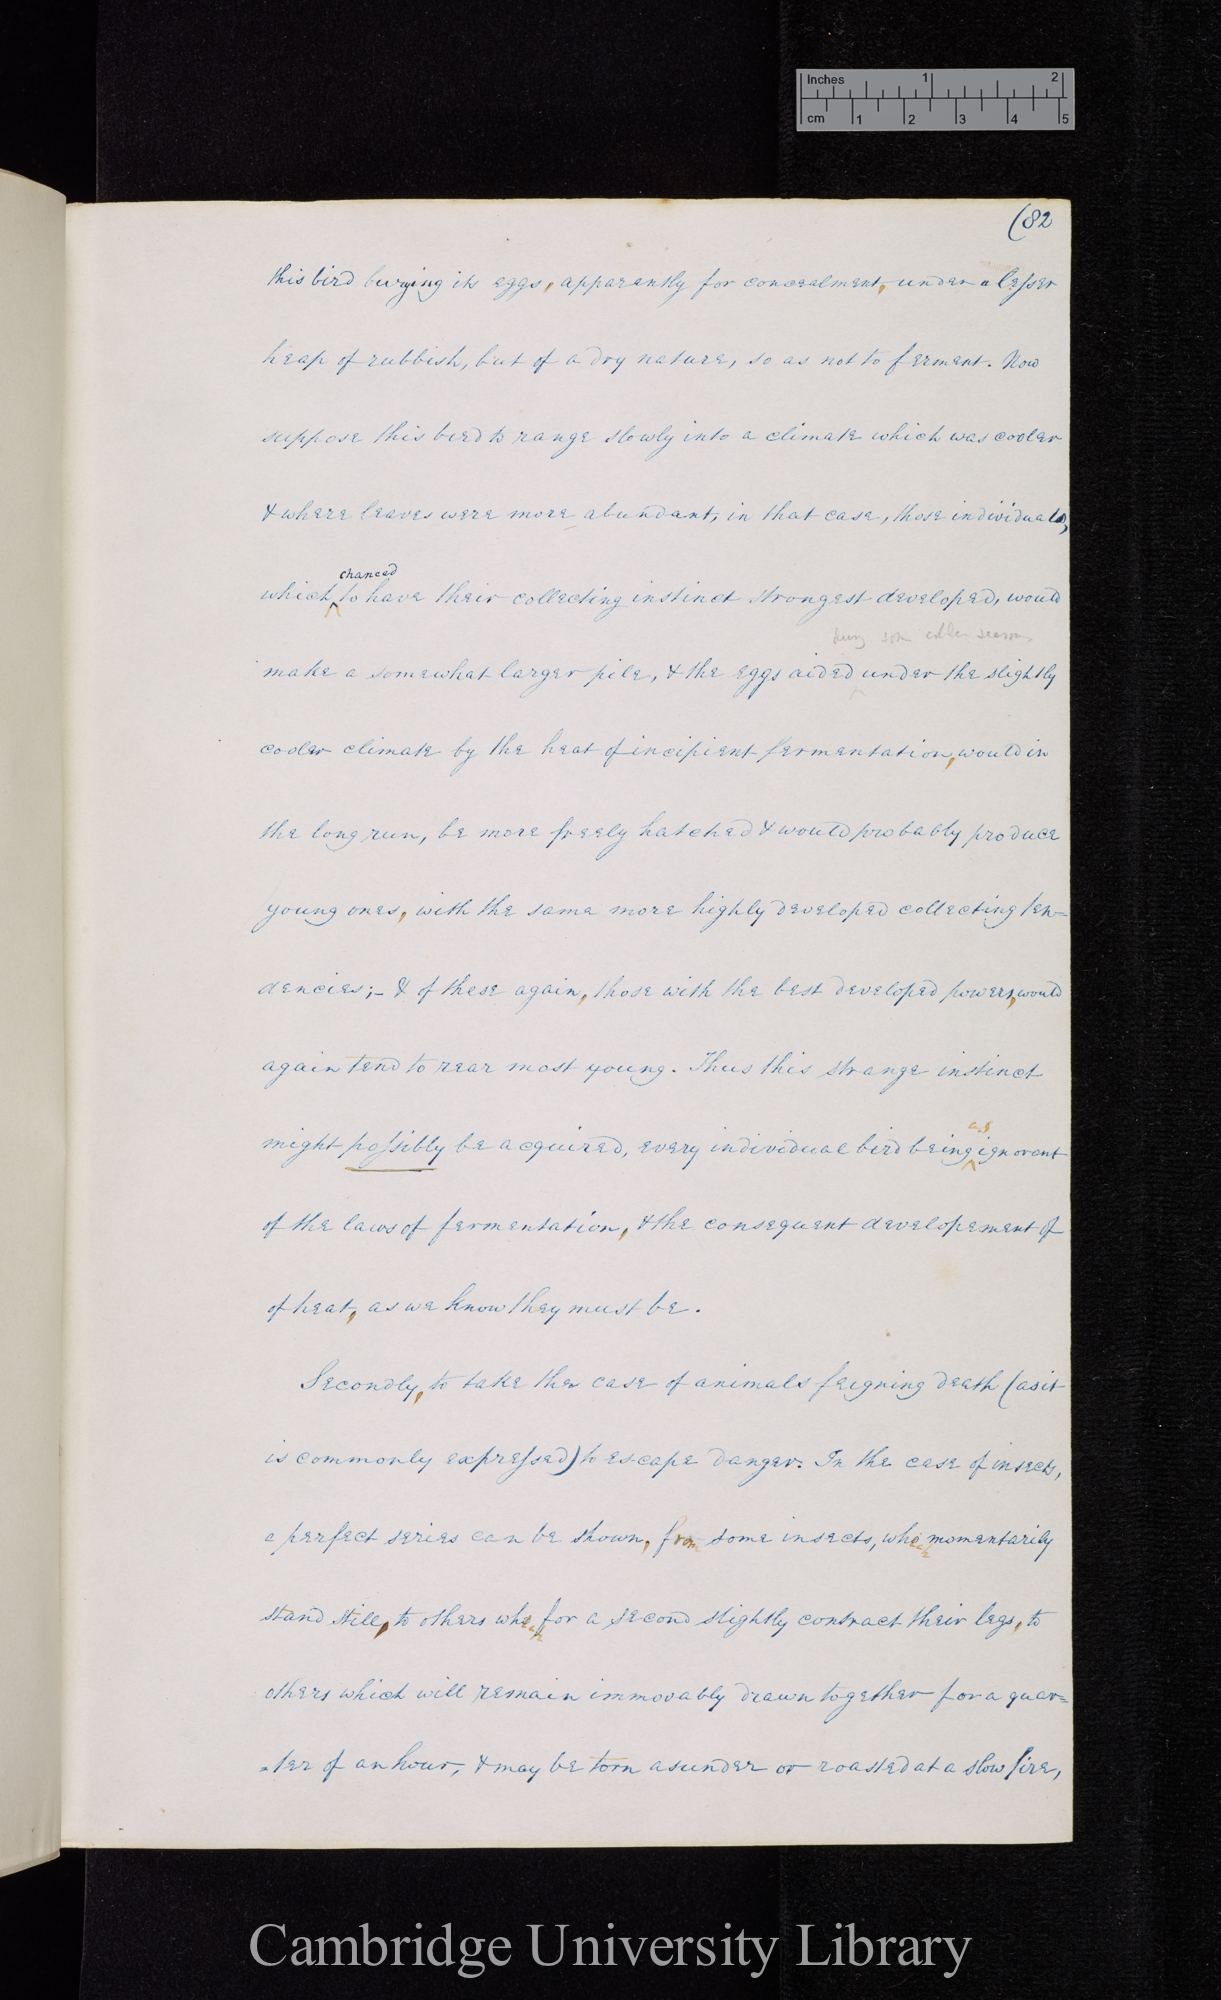 Inches 1 2
cm 1 2 3 4 5
(82
this bird burying its eggs, apparently for concealment, under a lesser
heap of rubbish, but of a dry nature, so as not to ferment. Now
suppose this bird to range slowly into a climate which was cooler
& where leaves were more abundant, in that case, those individuals,
chanced
which to have their collecting instinct strongest developed, would
some colder seasons
make a somewhat larger pile, & the eggs aided under the slightly
cooler climate by the heat of incipient fermentation, would in
the long run, be more freely hatched & would probably produce
young ones, with the same more highly developed collecting ten=
dencies;– & of these again, those with the best developed powers, would
again tend to rear most young. Thus this strange instinct
as
might possibly be acquired, every individual bird being ignorant
of the laws of fermentation, & the consequent developement of
of heat, as we know they must be.
Secondly, to take the case of animals feigning death (as it
is commonly expressed) to escape danger. In the case of insects,
a perfect series can be shown, from some insects, which momentarily
stand still, to others which for a second slightly contract their legs, to
others which will remain immovably drawn together for a quar=
-ter of an hour, & may be torn asunder or roasted at a slow fire,
Cambridge University Library